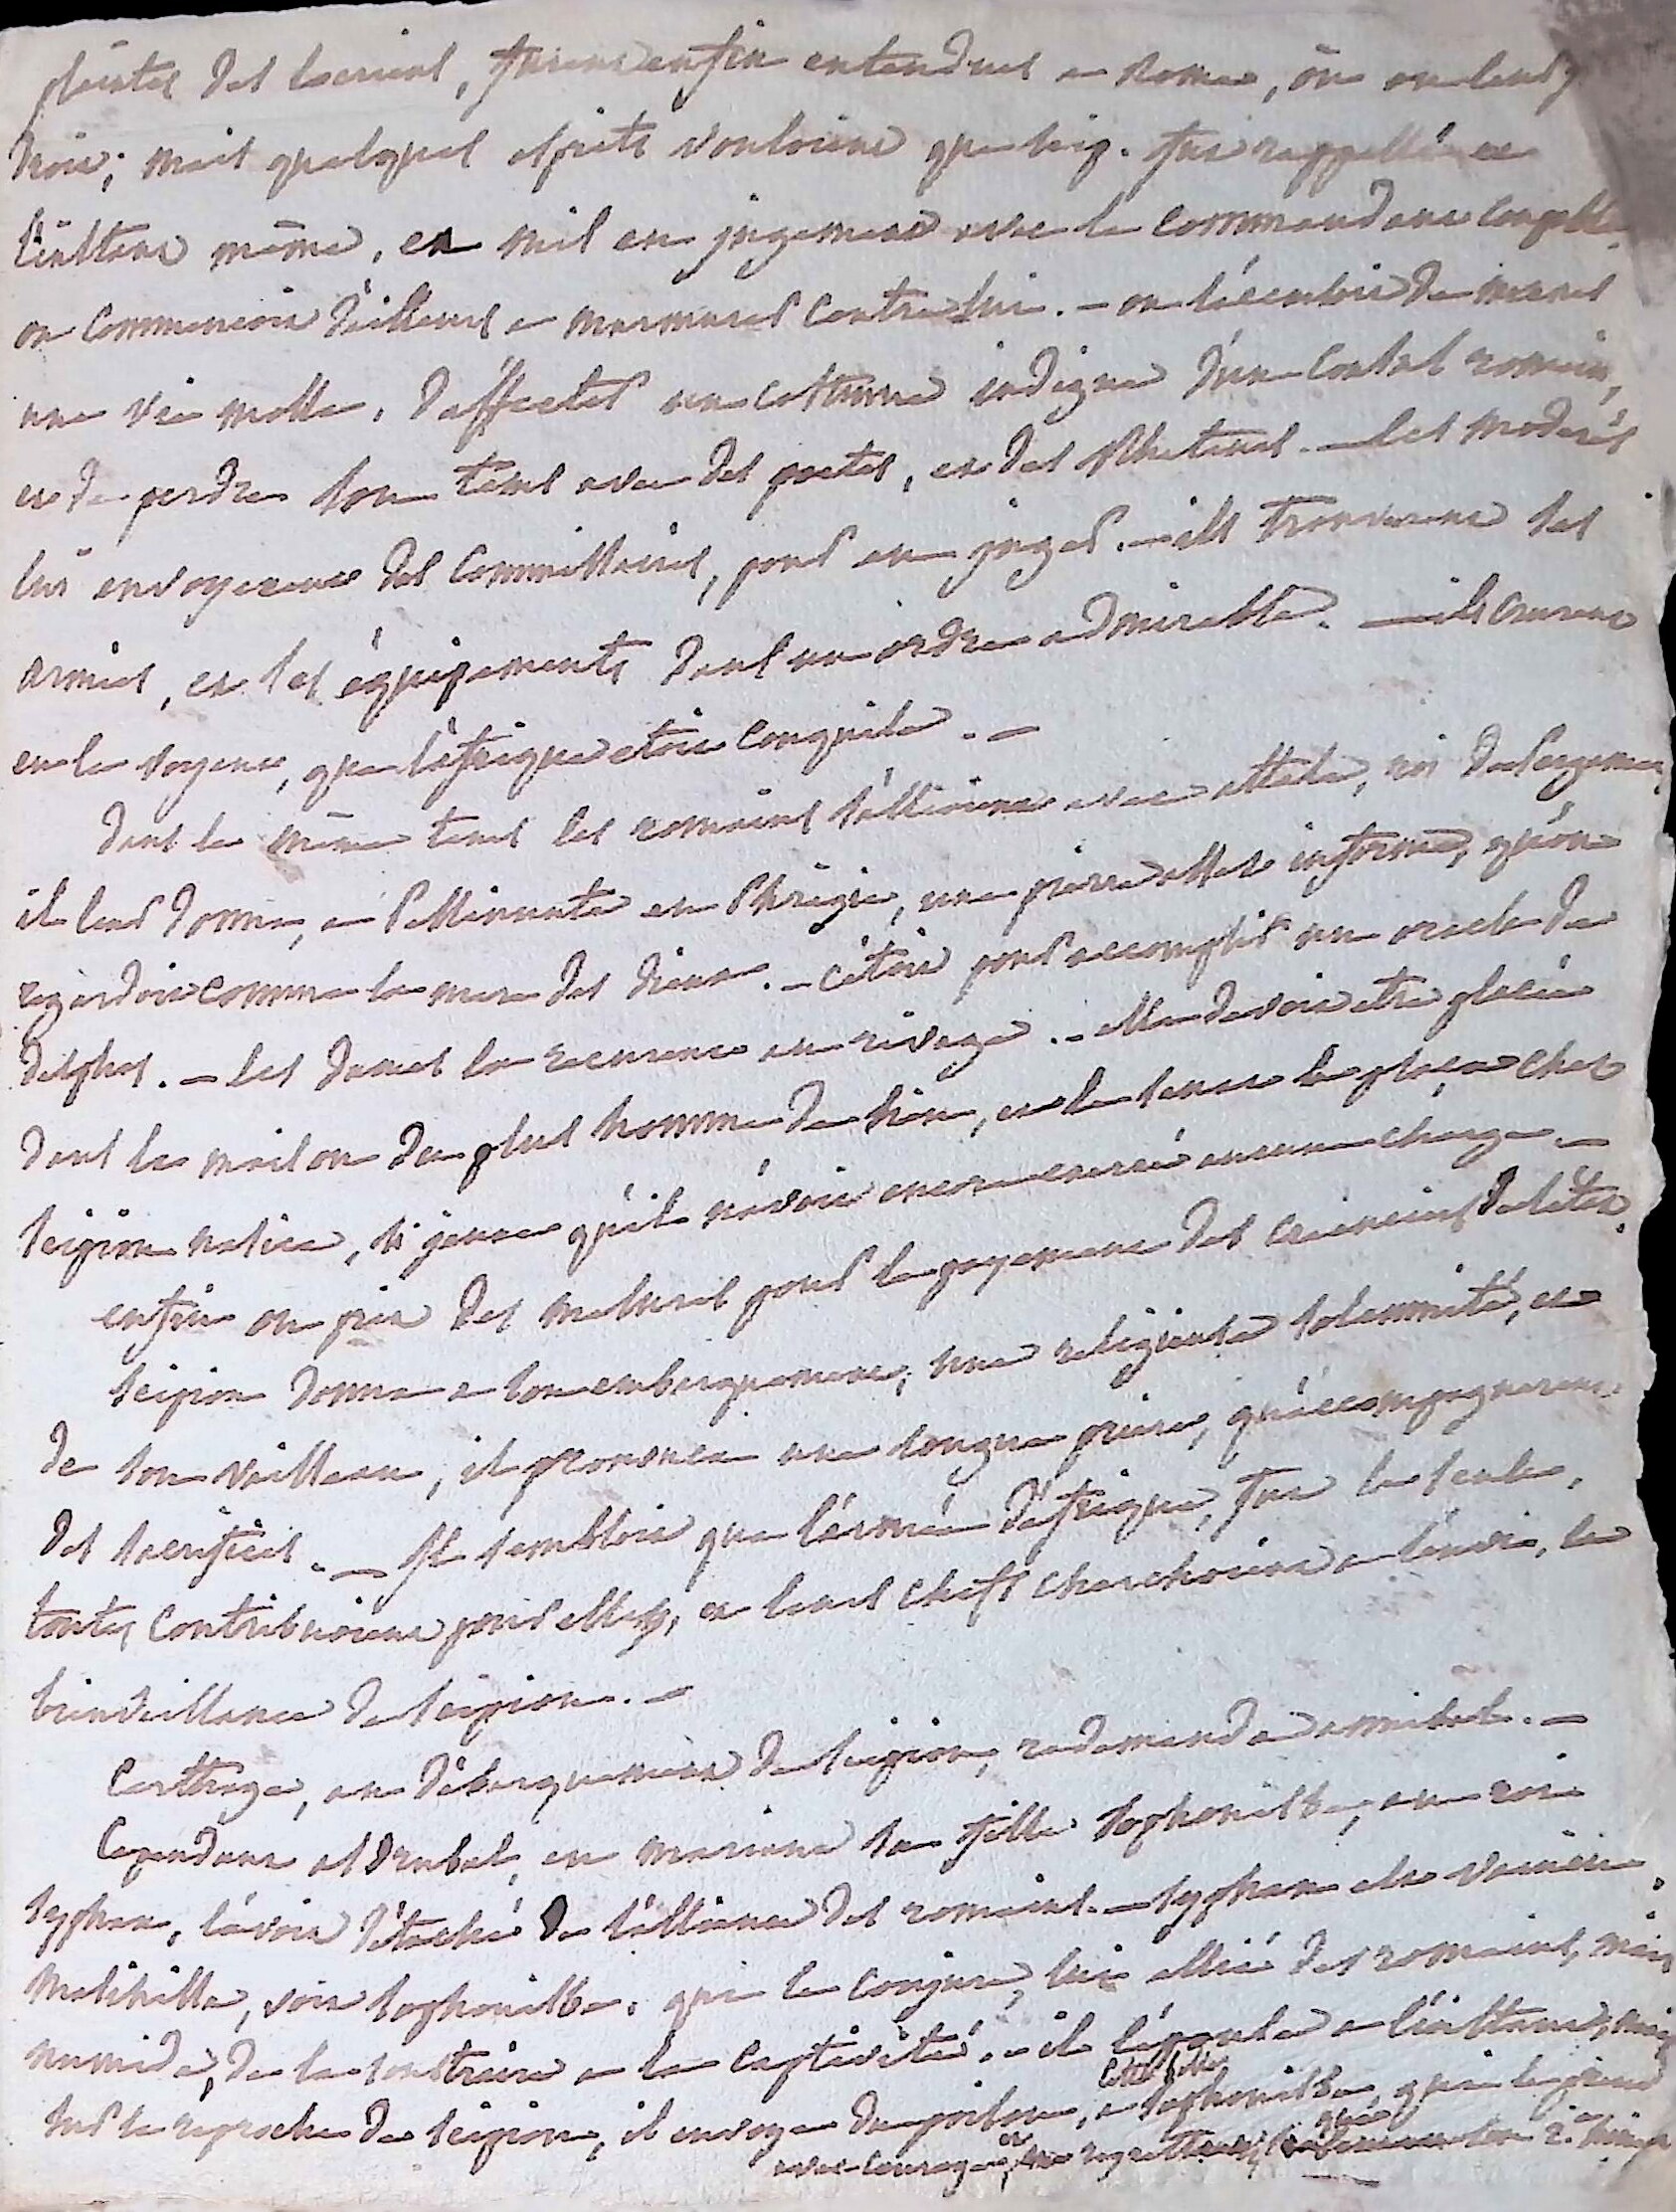 plaintes des locriens, furent enfin entendues a Rome, ou on leur fit
droit; mais quelques esprits vouloient que scip. fut rappellé a
l'instant même, et mis en jugement avec le commandant coupable.
on commencoit d'ailleurs a murmurer contre lui. — on l'accusoit de mener
une vie molle, d'affecter un costume indigne d'un consul romain,
et de perdre son tems avec des poetes, et des Rheteurs. — les moderés
lui envoyerent des commissaires, pour en juger. — ils trouverent les
armées, et les équipements dans un ordre admirable. — ils crurent
en le voyant, que l'afrique etoit conquise. —
dans le même tems les romains s'allierent avec attale, roi de Pergame,
il leur donna, a Pessinunte en Phrigie, une pierre assez informe, qu'on
regardoit comme la mere des dieux. — c'etoit pour accomplir un oracle de
delphes. — les dames la recurent au rivage. — elle devoit etre placée
dans la maison du plus homme de bien, et le senat la plaça chez
scipion nasica, si jeune qu'il n'avoit encore exercé aucune charge. —
enfin on prit des mesures pour le payement des créanciers de l'état.
scipion donna a son embarquement, une religieuse solemnité, et
de son vaisseau, il prononca une longue priere, qu'accompagnerent
des sacrifices. — Il sembloit que l'armée d'afrique, fut la seule,
toutes contribuoient pour elle, et leurs chefs cherchoient a l'envi, la
bienveillance de scipion. —
Carthage, au débarquement de scipion, redemanda annibal. —
Cependant asdrubal, en mariant sa fille sophonisbe, au roi
syphax, l'avoit détaché de l'alliance des romains. — syphax est vaincu.
Massinissa, voit sophonisbe, qui le conjure, lui allié des romains, mais
numide, de la soustraire a la captivité. — il l'épouse a l'instant, mais
sur le reproche de scipion, il envoye du poison, a cette belle sophonisbe, qui le prend
avec courage, et ne regrette que son 2.e himen